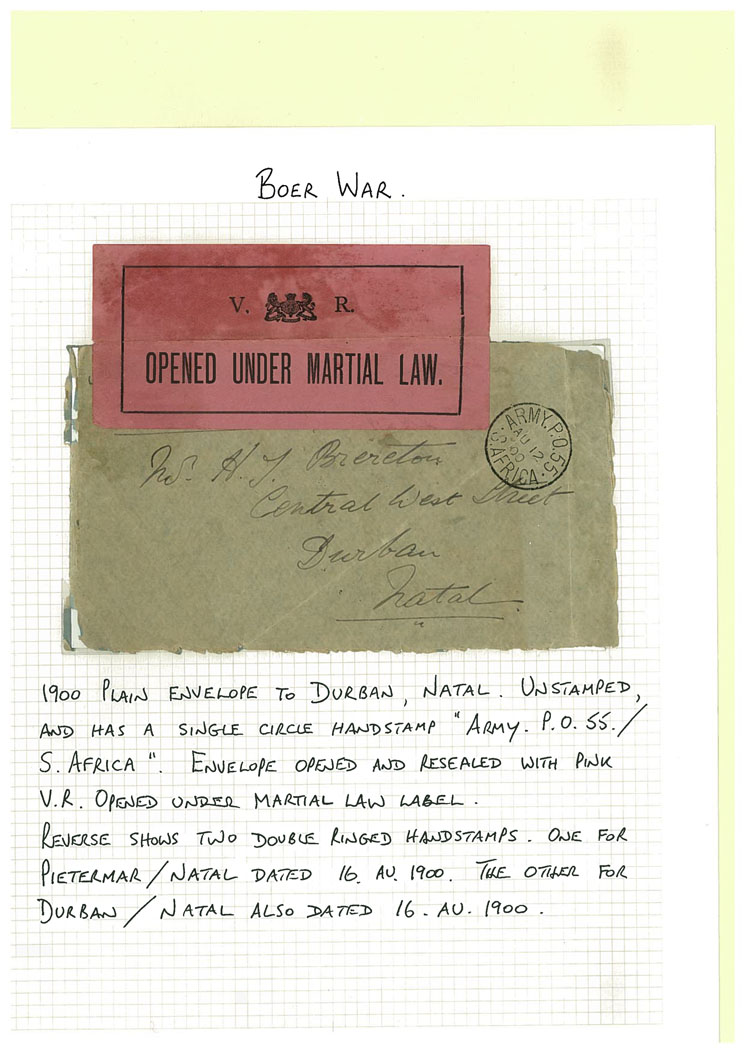 BOER WAR.
V. R.
OPENED UNDER MARTIAL LAW.
ARMY. P.O. 55.
AU 12
00
S. AFRICA.
H. J. Brereton
Central West Street
Durban
Natal.
1900 PLAIN ENVELOPE TO DURBAN, NATAL. UNSTAMPED,
AND HAS A SINGLE CIRCLE HANDSTAMP "ARMY. P.O. 55./
S. AFRICA". ENVELOPE OPENED AND RESEALED WITH PINK
V.R. OPENED UNDER MARTIAL LAW LABEL.
REVERSE SHOWS TWO DOUBLE RINGED HANDSTAMPS. ONE FOR
PIETERMAR/NATAL DATED 16. AU. 1900. THE OTHER FOR
DURBAN/NATAL ALSO DATED 16. AU. 1900.